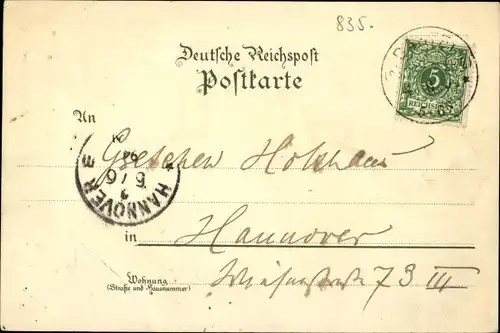 835.
Deutsche Reichspost
Postkarte
5
REICHSPOST
An
Gretchen Holzhaus
HANNOVER
in Hannover
Wohnung
(Straße und Hausnummer)
73 III